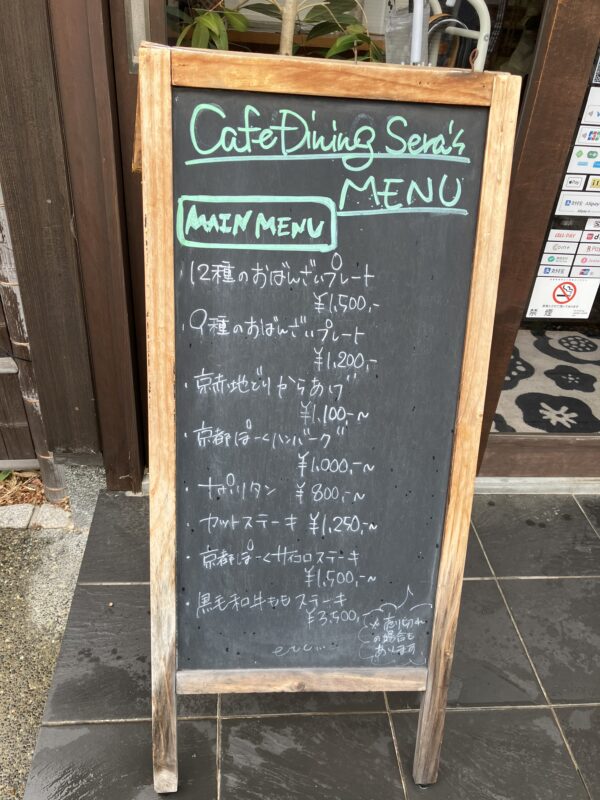 Cafe Dining Sera's
MENU
MAIN MENU
・12種のおばんざいプレート
¥1,500,-
・9種のおばんざいプレート
¥1,200,-
・京赤地どりからあげ
¥1,100-~
・京都ぽーくハンバーグ
¥1,000,-~
・ナポリタン ¥800,-~
・カットステーキ ¥1,250,-~
・京都ぽーくサイコロステーキ
¥1,500,-~
・黒毛和牛ももステーキ
¥3,500,-
※売り切れ
の場合も
あります
etc...
禁煙